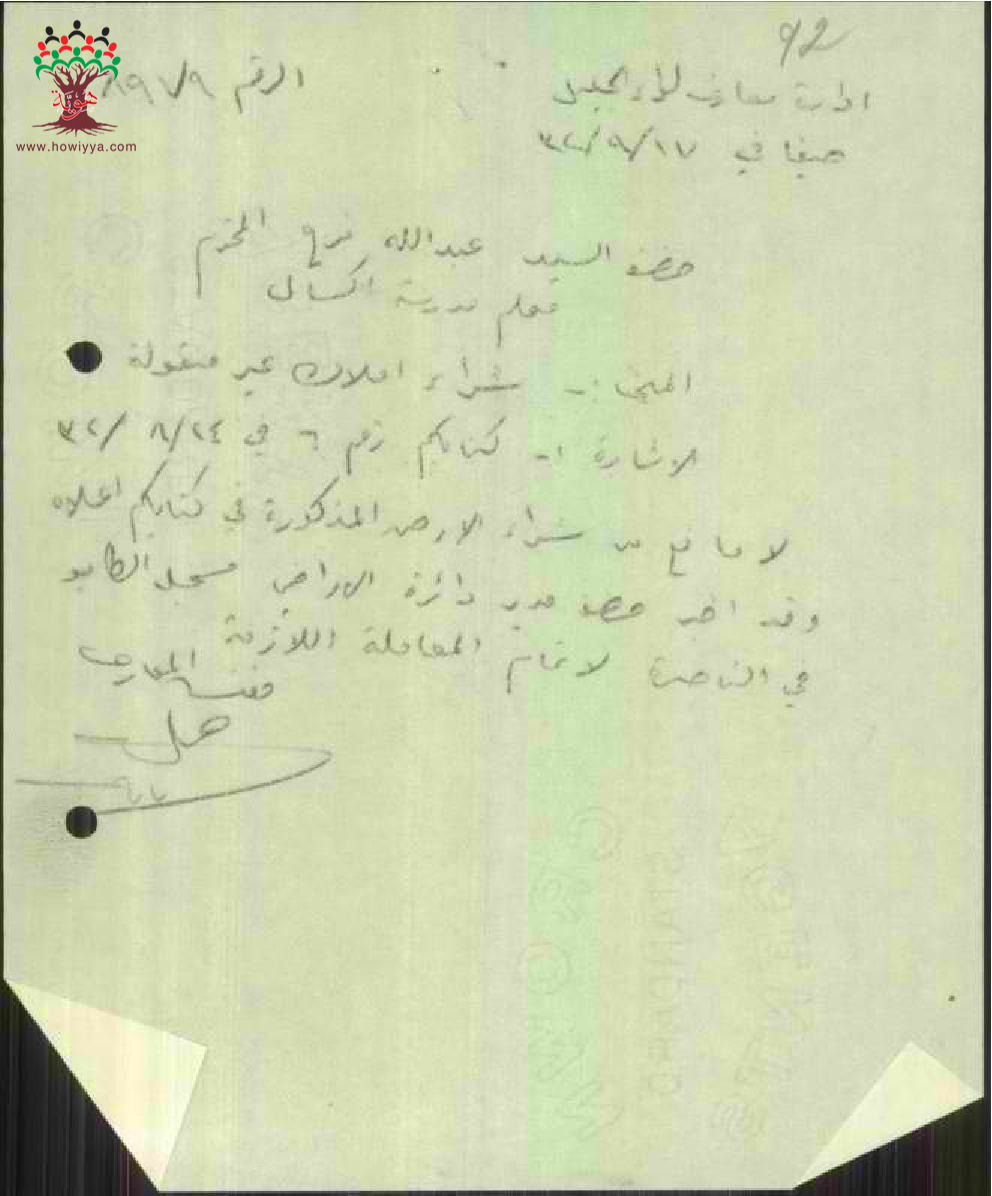 92
ادارة معارف لواء الجليل
الرقم ٨٩٦/٩
حيفا في ٣٢/٩/١٧
حضرة السيد عبدالله فرح المحترم
معلم مدرسة اكسال
شراء املاك غير منقولة
الاشارة :- كتابكم رقم ٦ في ٣٢/٨/٢٤
لا مانع من شراء الارض المذكورة في كتابكم اعلاه
وقد اخبر حضرة مدير دائرة الاراضي مسجل الطابو
في الناصرة لاتمام المعاملة اللازمة
مفتش المعارف
هويّة
www.howiyya.com